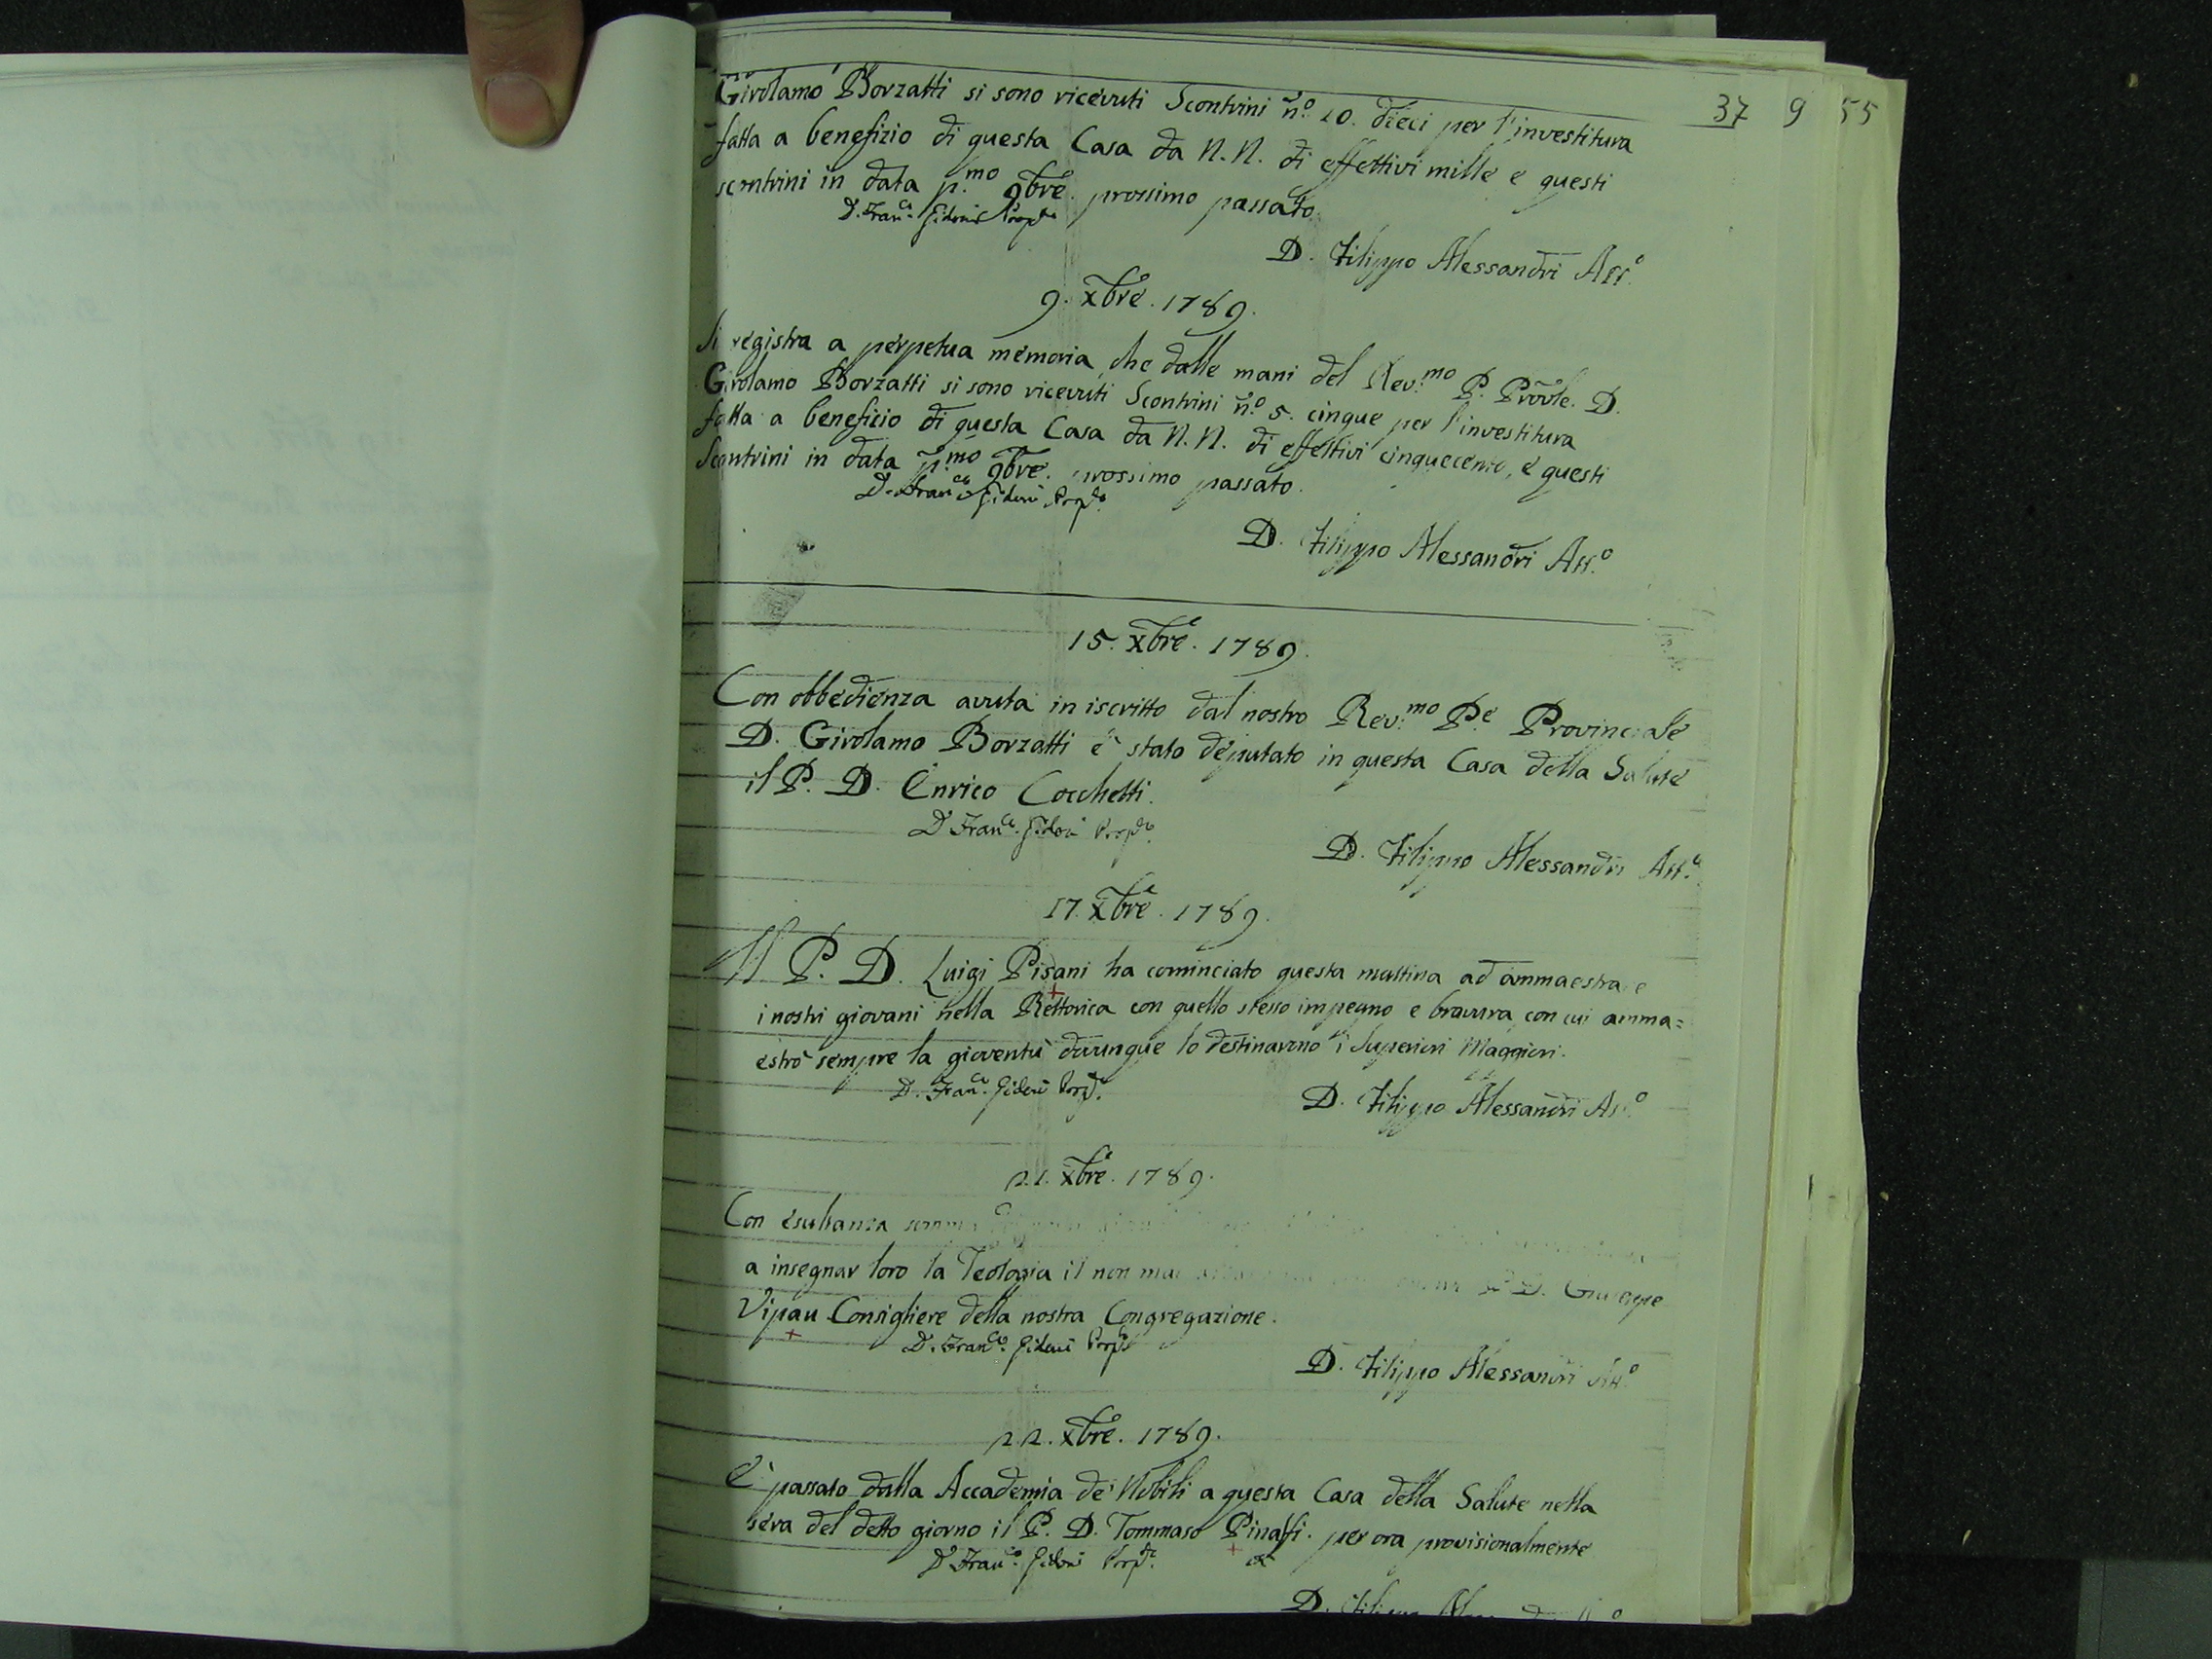 37 9 55
Girolamo Borzatti si sono ricevuti Scontrini n.º 10. dieci per l'investitura
fatta a benefizio di questa Casa da N. N. di effettivi mille e questi
scontrini in data p.mo 9bre. prossimo passato.
D. Franc.º Gidoni Prop.to
D. Filippo Alessandri Att.º
9. Xbre. 1789.
Si registra a perpetua memoria, che dalle mani del Rev.mo P. Provle. D.
Girolamo Borzatti si sono ricevuti Scontrini n.º 5. cinque per l'investitura
fatta a beneficio di questa Casa da N. N. di effettivi cinquecento, e questi
Scontrini in data p.mo 9bre. prossimo passato.
D. Franc.º Gidoni Prop.to
D. Filippo Alessandri Att.º
15. Xbre. 1789.
Con obbedienza avuta in iscritto dal nostro Rev.mo P.e Provinciale
D. Girolamo Borzatti è stato deputato in questa Casa della Salute
il P. D. Enrico Cocchetti.
D. Franc.º Gidoni Prop.to
D. Filippo Alessandri Att.º
17. Xbre. 1789.
Il P. D. Luigi Pisani ha cominciato questa mattina ad ammaestrare
i nostri giovani nella Rettorica con quello stesso impegno e bravura, con cui amma=
estrò sempre la gioventù dovunque lo destinarono i Superiori Maggiori.
D. Franc.º Gidoni Prop.to
D. Filippo Alessandri Att.º
21. Xbre. 1789.
Con esultanza
a insegnar loro la Teologia il non mai P. D. Giuseppe
Vipau Consigliere della nostra Congregazione.
D. Franc.º Gidoni Prop.to
D. Filippo Alessandri Att.º
22. Xbre. 1789.
È passato dalla Accademia de' Nobili a questa Casa della Salute nella
sera del detto giorno il P. D. Tommaso Pinaffi. per ora provisionalmente
D. Franc.º Gidoni Prop.to
D. Filippo